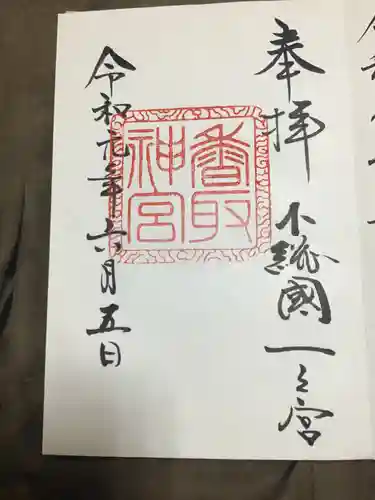 奉拝 下総國一之宮
香取神宮
令和元年六月五日